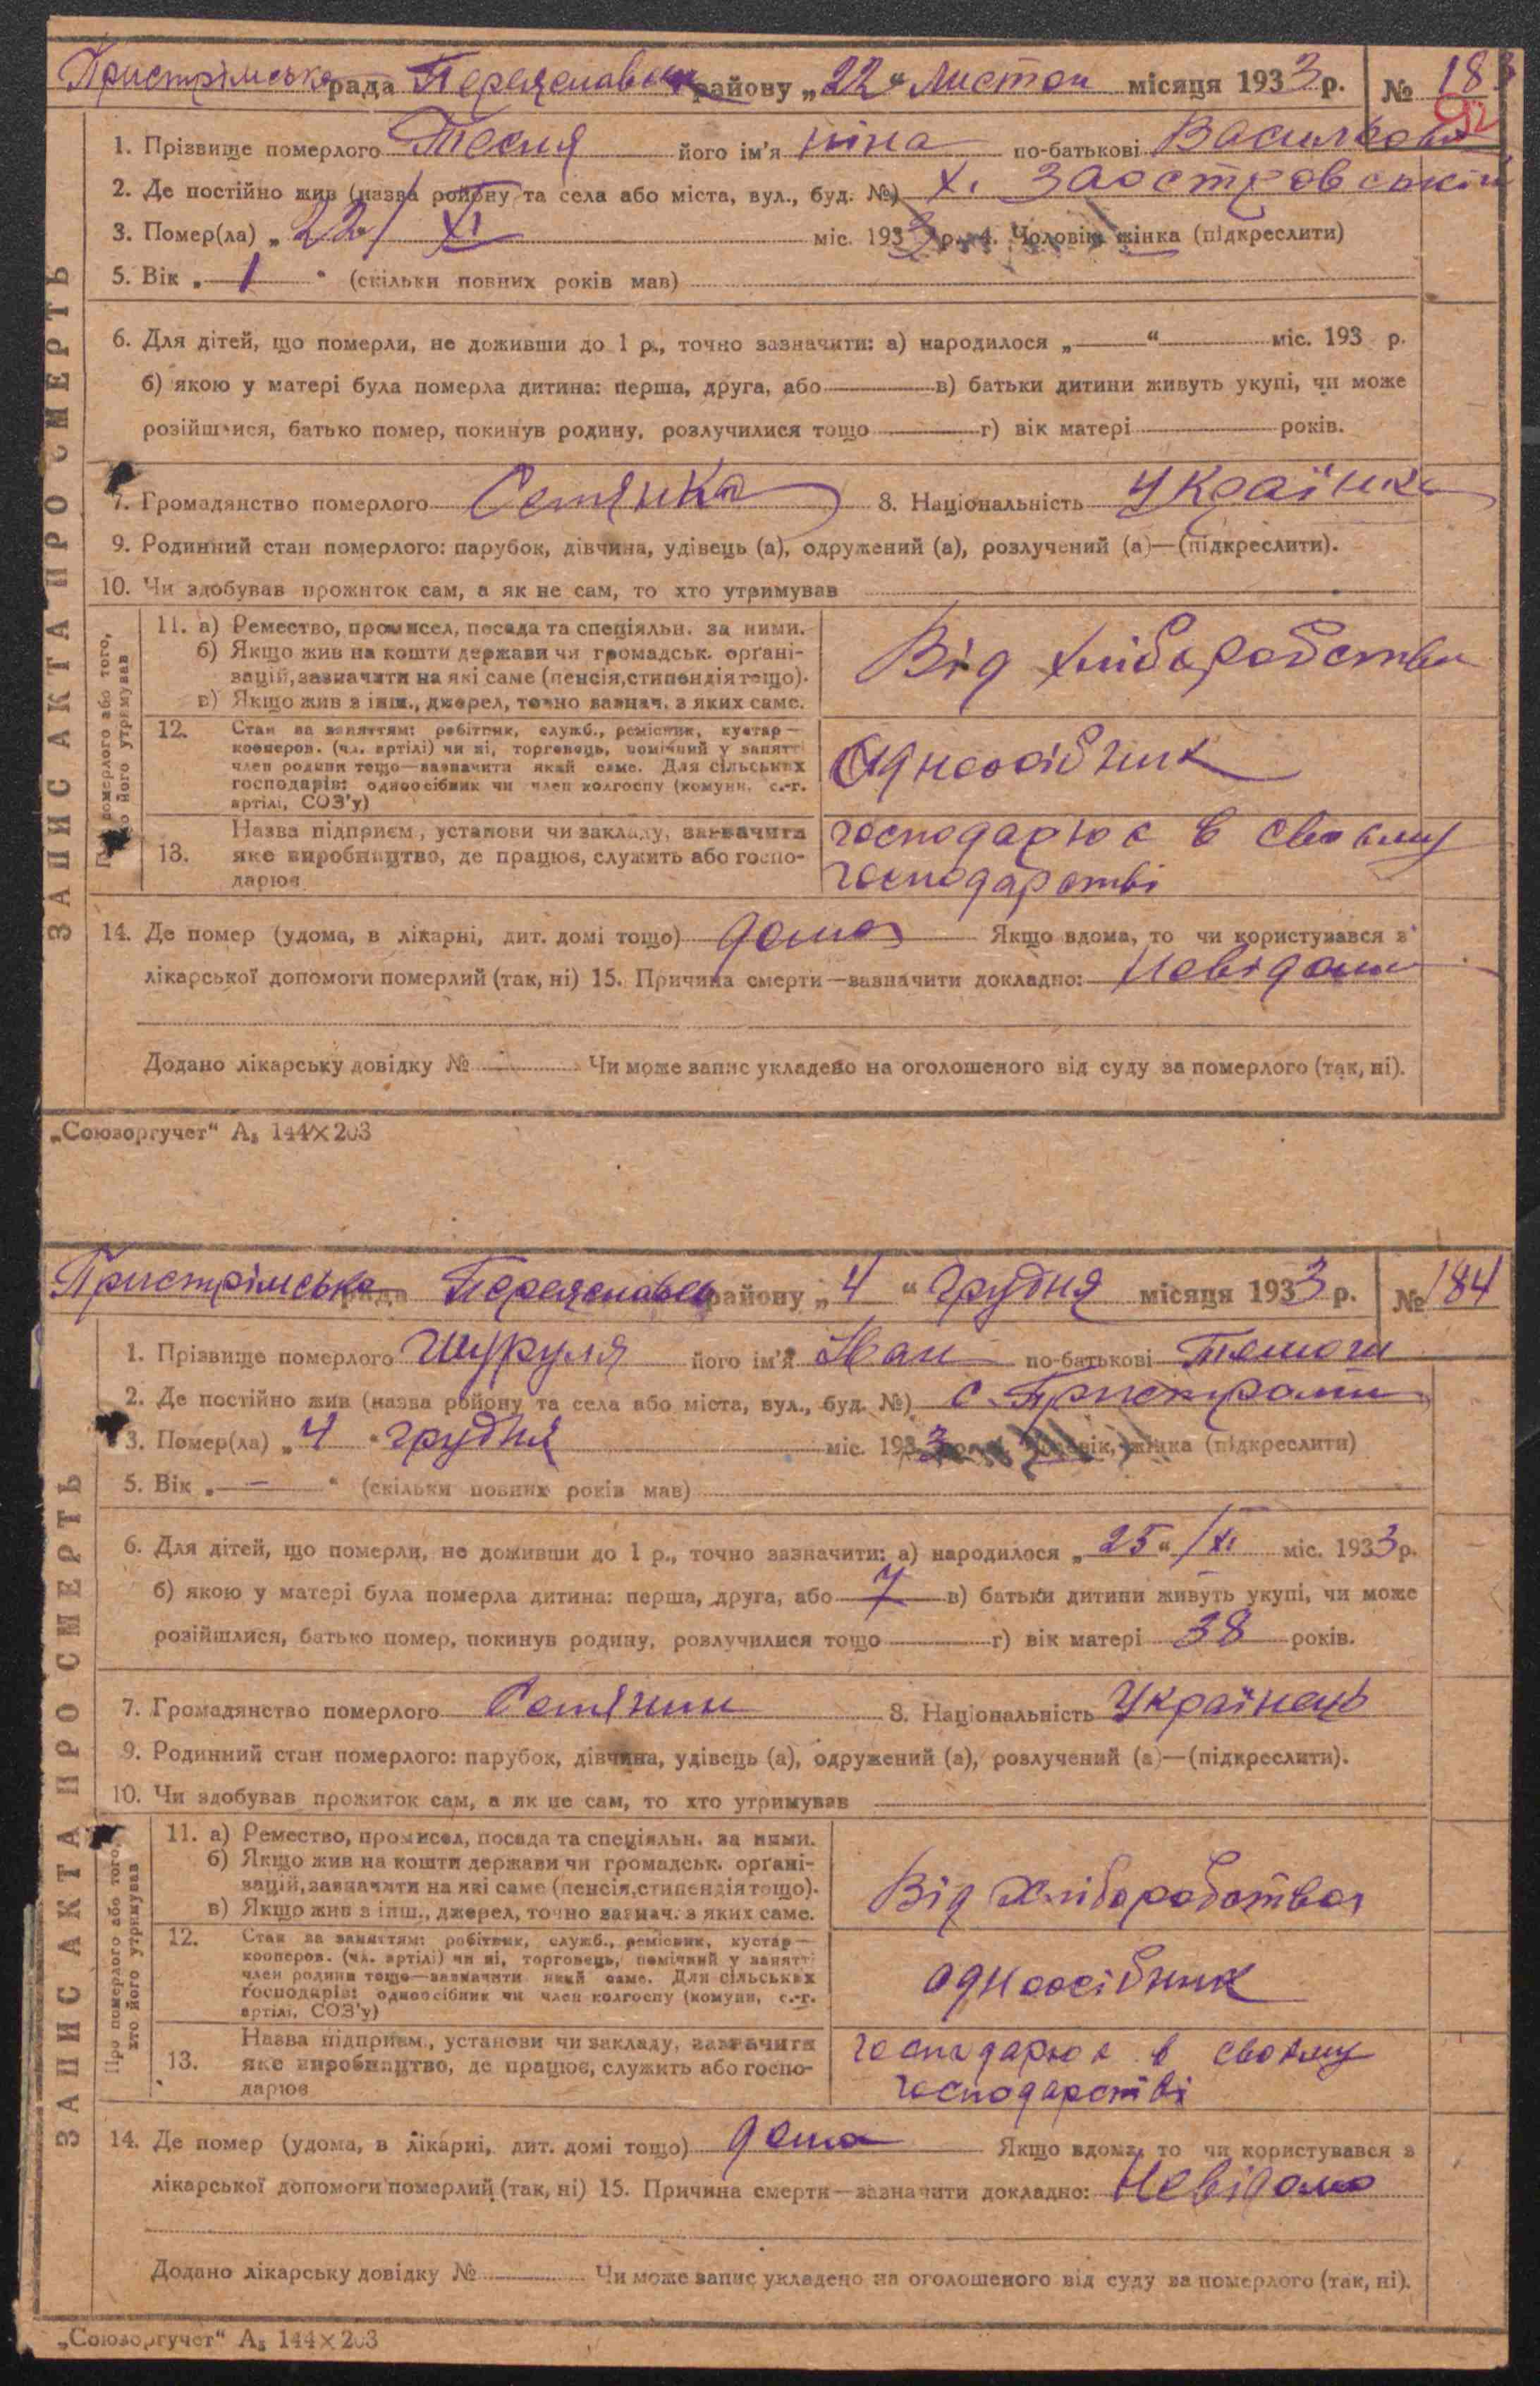 Пристрімська рада Переяславськ району „22“ Листоп місяця 1933 р. № 183
92
1. Прізвище померлого Тесля його ім'я Ніна по-батькові Васильовн
2. Де постійно жив (назва району та села або міста, вул., буд. №) х. Заостровський
3. Помер(ла) „22/XI міс. 1933 р. 4. Чоловік, жінка (підкреслити)
5. Вік „1“ (скільки повних років мав)
6. Для дітей, що померли, не доживши до 1 р., точно зазначити: а) народилося „ “ міс. 193 р.
б) якою у матері була померла дитина: перша, друга, або в) батьки дитини живуть укупі, чи може
розійшлися, батько помер, покинув родину, розлучилися тощо г) вік матері років.
7. Громадянство померлого Селянка 8. Національність Українка
9. Родинний стан померлого: парубок, дівчина, удівець (а), одружений (а), розлучений (а)—(підкреслити).
10. Чи здобував прожиток сам, а як не сам, то хто утримував
ЗАПИС АКТА ПРО СМЕРТЬ
Про померлого або того, хто його утримував
11. а) Ремество, промисел, посада та спеціяльн. за ними.
б) Якщо жив на кошти держави чи громадськ. орґані-
зацій, зазначити на які саме (пенсія, стипендія тощо).
в) Якщо жив з інш., джерел, точно зазнач. з яких саме.
Від хліборобства
12. Стан за заняттям: робітник, служб., ремісник, кустар—
кооперов. (чл. артілі) чи ні, торговець, помічний у занятті
член родини тощо—зазначити який саме. Для сільських
господарів: одноосібник чи член колгоспу (комуни, с.-г.
артілі, СОЗ'у)
Одноосібник
13. Назва підприєм., установи чи закладу, зазначити
яке виробництво, де працює, служить або госпо-
дарює
господарює в своєму
господарстві
14. Де помер (удома, в лікарні, дит. домі тощо) дома Якщо вдома, то чи користувався з
лікарської допомоги померлий (так, ні) 15. Причина смерти—зазначити докладно: Невідомо
Додано лікарську довідку № Чи може запис укладено на оголошеного від суду за померлого (так, ні).
„Союзоргучет“ А₅ 144×203
Пристрімська рада Переяславськ району „4“ Грудня місяця 1933 р. № 184
1. Прізвище померлого Шуруля його ім'я Іван по-батькові
2. Де постійно жив (назва району та села або міста, вул., буд. №) с. Пристроми
3. Помер(ла) „4“ грудня міс. 1933 р. 4. Чоловік, жінка (підкреслити)
5. Вік „—“ (скільки повних років мав)
6. Для дітей, що померли, не доживши до 1 р., точно зазначити: а) народилося „25“/XI міс. 1933 р.
б) якою у матері була померла дитина: перша, друга, або 7 в) батьки дитини живуть укупі, чи може
розійшлися, батько помер, покинув родину, розлучилися тощо г) вік матері 38 років.
7. Громадянство померлого Селянин 8. Національність Українець
9. Родинний стан померлого: парубок, дівчина, удівець (а), одружений (а), розлучений (а)—(підкреслити).
10. Чи здобував прожиток сам, а як не сам, то хто утримував
ЗАПИС АКТА ПРО СМЕРТЬ
Про померлого або того, хто його утримував
11. а) Ремество, промисел, посада та спеціяльн. за ними.
б) Якщо жив на кошти держави чи громадськ. орґані-
зацій, зазначити на які саме (пенсія, стипендія тощо).
в) Якщо жив з інш., джерел, точно зазнач. з яких саме.
Від хліборобства
12. Стан за заняттям: робітник, служб., ремісник, кустар—
кооперов. (чл. артілі) чи ні, торговець, помічний у занятті
член родини тощо—зазначити який саме. Для сільських
господарів: одноосібник чи член колгоспу (комуни, с.-г.
артілі, СОЗ'у)
одноосібник
13. Назва підприєм., установи чи закладу, зазначити
яке виробництво, де працює, служить або госпо-
дарює
господарює в своєму
господарстві
14. Де помер (удома, в лікарні, дит. домі тощо) дома Якщо вдома, то чи користувався з
лікарської допомоги померлий (так, ні) 15. Причина смерти—зазначити докладно: Невідомо
Додано лікарську довідку № Чи може запис укладено на оголошеного від суду за померлого (так, ні).
„Союзоргучет“ А₅ 144×203